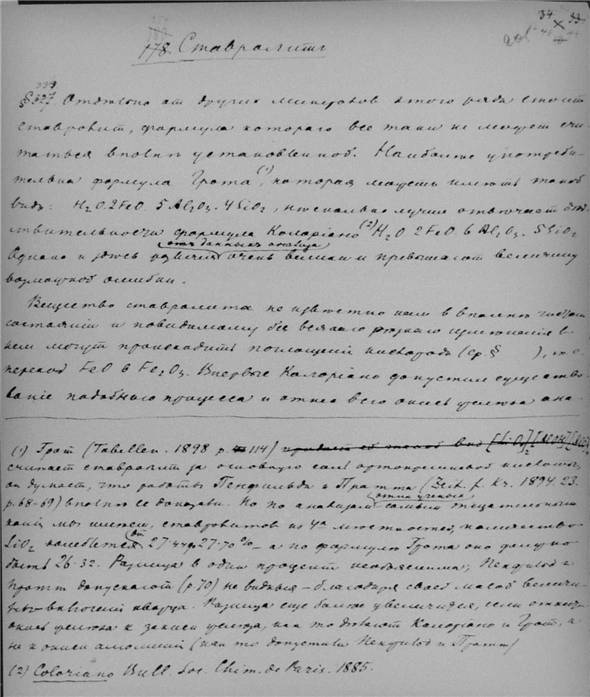 34
178. Ставролитъ
§ 327 Отдѣльно отъ другихъ минераловъ этого ряда стоитъ
ставролит, формула котораго все таки не можетъ счи-
таться вполнѣ установленной. Наиболѣе употреби-
тельна формула Грота (1), которая можетъ имѣть такой
видъ: H2O 2FeO. 5Al2O3. 4SiO2, нѣсколько лучше отвѣчает дѣй-
ствительности формула Колоріано (2) H2O 2FeO 6Al2O3. 5SiO2
отъ данныхъ опыта
Однако и здѣсь очень велики и превышаютъ величину
возможной ошибки.
Вещество ставролита не извѣстно намъ в вполнѣ чистом
состояніи и повидимому без всякаго измѣненія в
нем могутъ происходить поглощенія кислорода (ср. § ), т.е.
переход FeO в Fe2O3. Впервые Колоріано допустил существо-
ваніе подобнаго процесса и отнес всего окись желѣза
(1) Грот (Tabellen. 1898 p. 114)
считает ставролит за основную соль ортокремневой кислоты,
он думает, что работы Пенфильда и Пратта (Zeit. f. Kr. 1894. 23.
p. 68-69) вполнѣ это доказали. Но по анализам самым тщательным
этих ученых
какія мы имѣем, ставролитов из 4х мѣстностей, количество
SiO2 колеблется от 27.44 27.70% - а по формулѣ Грота оно должно
быть 26.32. Разница в один процент необъяснима; Пенфильд и
Пратт допускают (p 70) не видныя - благодаря своей малой величи-
нѣ - включенія кварца. Разница еще болѣе увеличится, если отнести
окись желѣза к закиси желѣза, как то дѣлают Колоріано и Грот, а
не к окиси алюминія (как то допустили Пенфильд и Пратт)
(2) Coloriano Bull. Soc. Chim. de Paris. 1885.